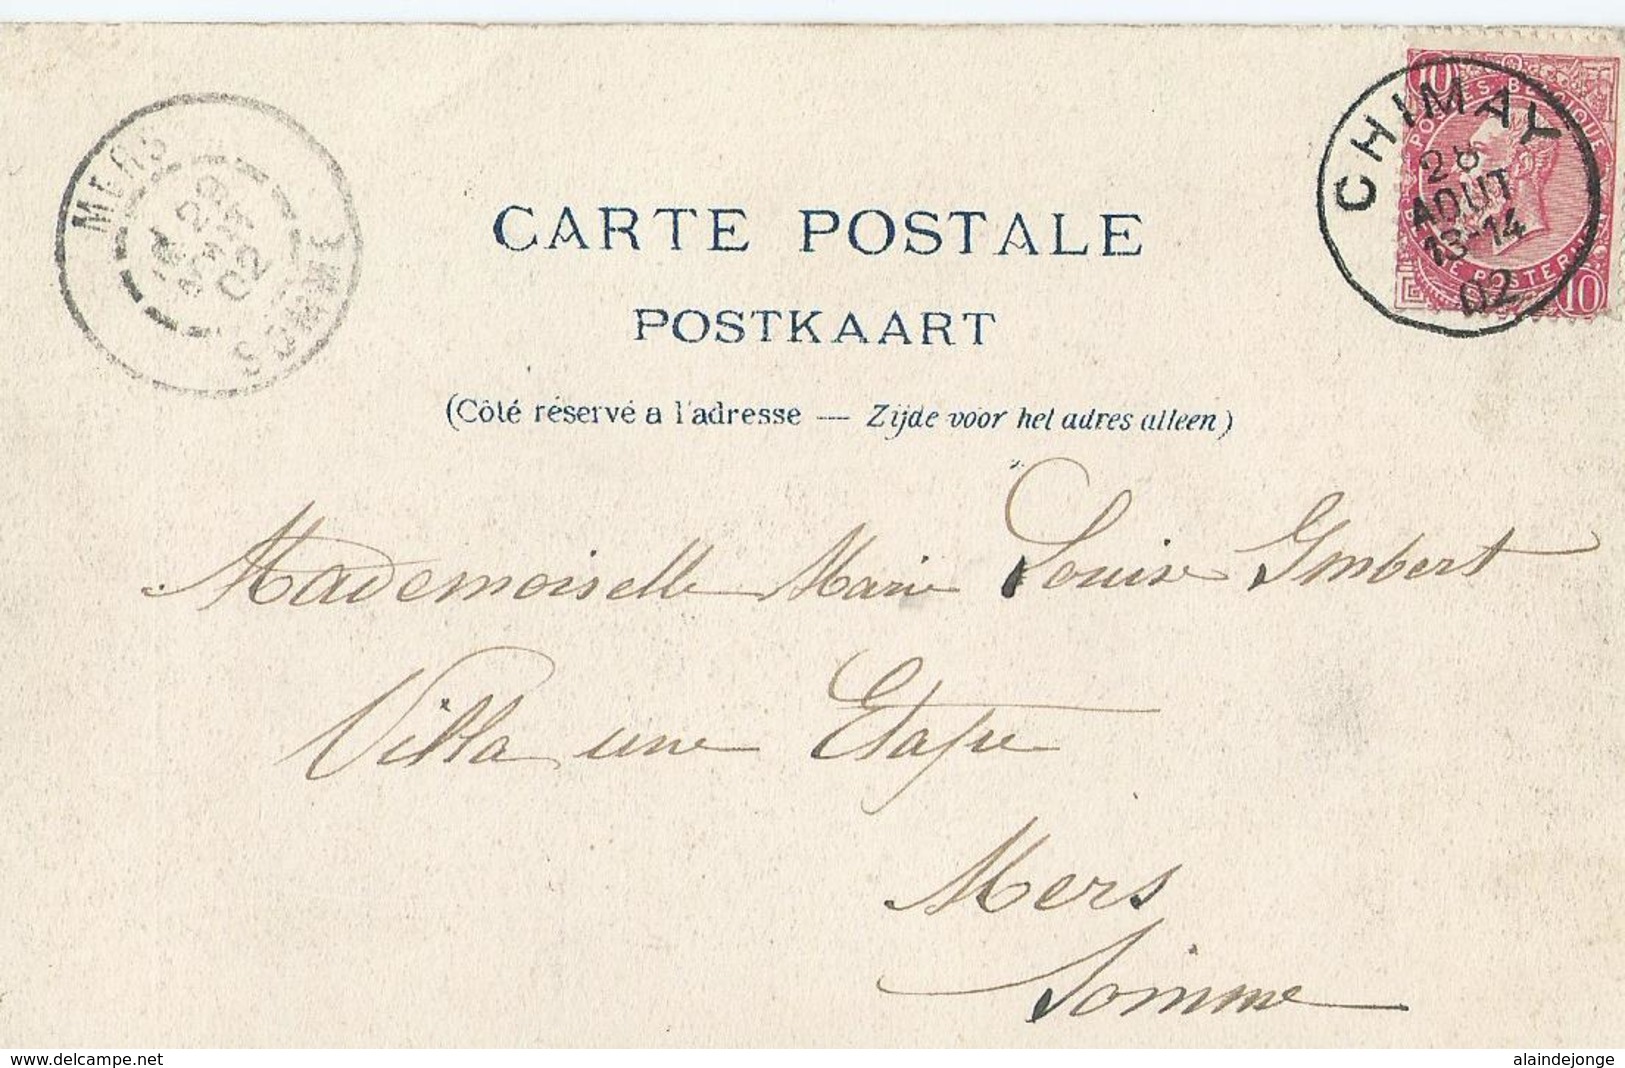 MERS
SOMME
29
AOUT
02
CHIMAY
28
AOUT
13-14
02
10
POSTES BELGIQUE
10
CARTE POSTALE
POSTKAART
(Côté réservé a l'adresse — Zijde voor het adres alleen)
Mademoiselle Marie Louise Imbert
Villa une Etape
Mers
Somme
www.delcampe.net
alaindejonge